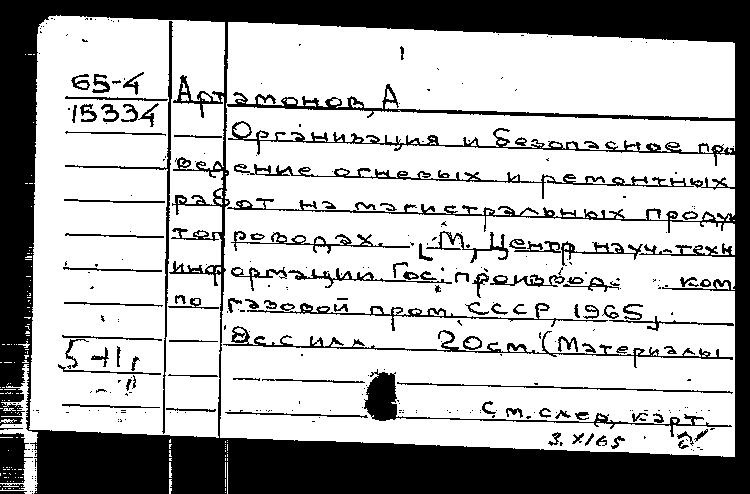 1
65-4
15334
Артамонов, А
Организация и безопасное про
ведение огневых и ремонтных
работ на магистральных продук
топроводах. [М., Центр науч.-техн
информации Гос. производ. ком.
по газовой пром. СССР, 1965].
8с. с илл. 20 см. (Материалы
5-
См. след. карт.
3.X/65